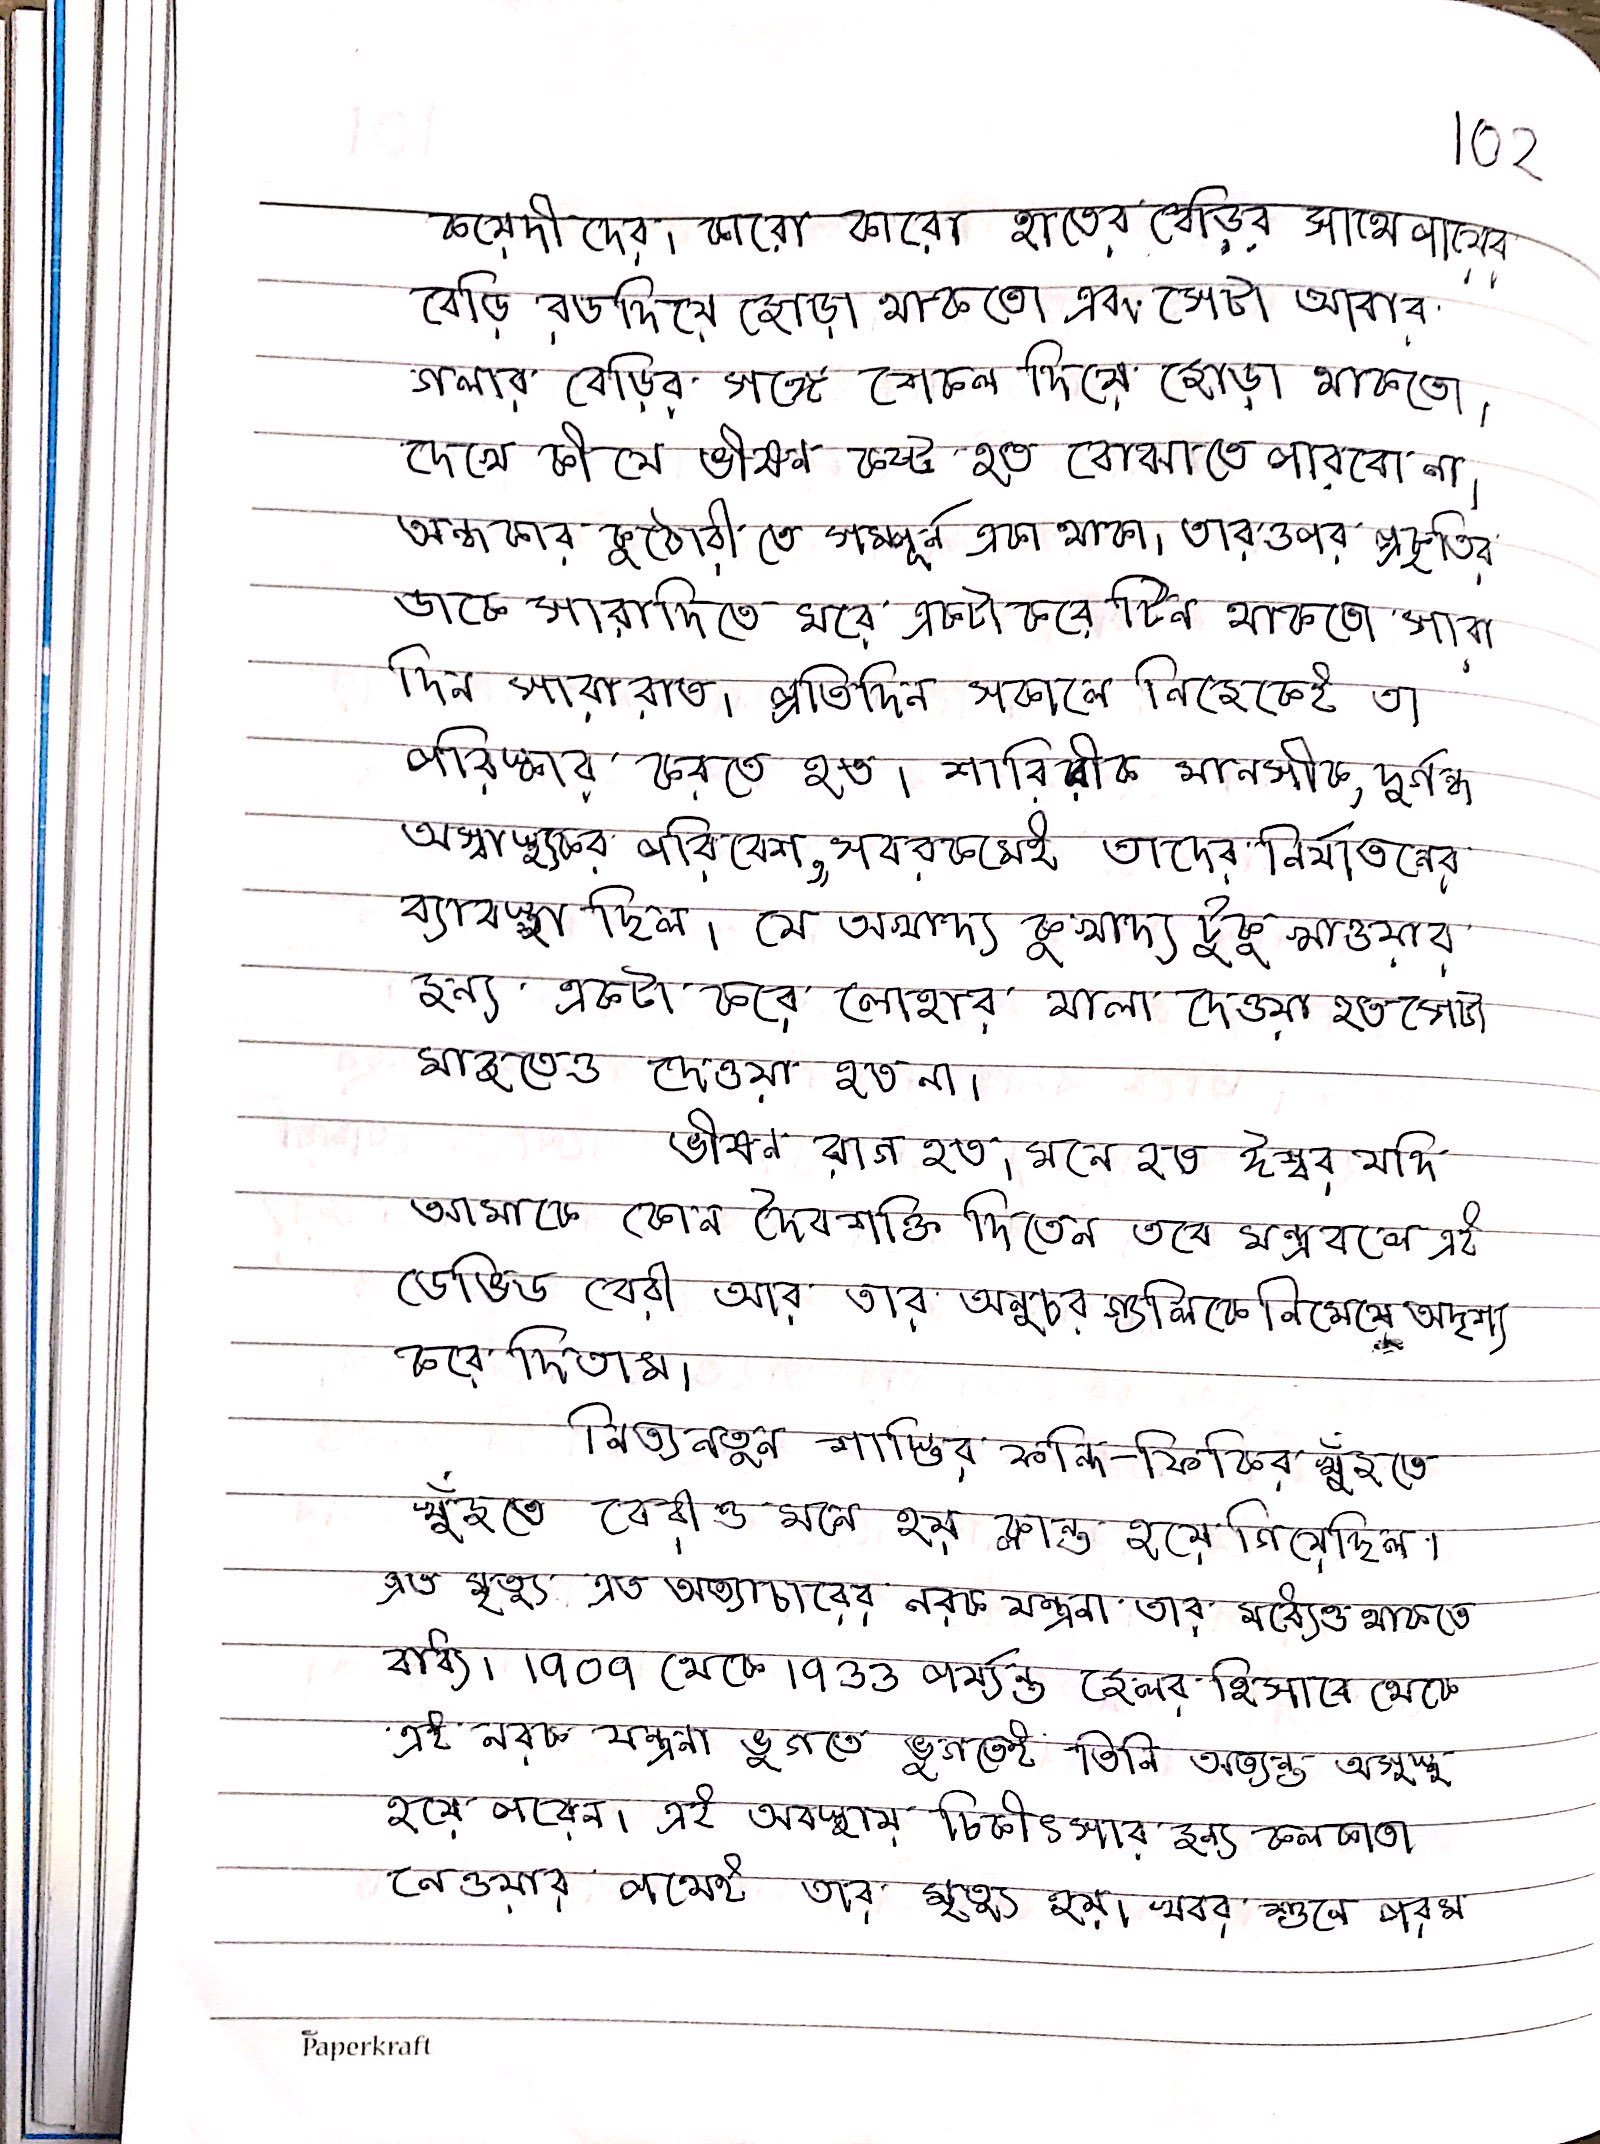 102
কয়েদী দের। কারো কারো হাতের বেড়ির সাথে পায়ের
বেড়ি রড দিয়ে জোড়া থাকতো এবং সেটা আবার
গলার বেড়ির সঙ্গে শেকল দিয়ে জোড়া থাকতো।
দেখে কী যে ভীষন কষ্ট হত বোঝাতে পারবো না।
অন্ধকার কুঠোরী তে সম্পূর্ন একা থাকা। তার ওপর প্রকৃতির
ডাকে সারা দিতে ঘরে একটা করে টিন থাকতো সারা
দিন সারা রাত। প্রতিদিন সকালে নিজেকেই তা
পরিস্কার করতে হত। শারিরীক মানসীক, দুর্গন্ধ
অস্বাস্থ্যকর পরিবেশ, সবরকমেই তাদের নির্যাতনের
ব্যাবস্থা ছিল। যে অখাদ্য কুখাদ্য টুকু খাওয়ার
জন্য একটা করে লোহার থালা দেওয়া হত সেটা
মাজতেও দেওয়া হত না।
ভীষন রাগ হত। মনে হত ঈশ্বর যদি
আমাকে কোন দৈবশক্তি দিতেন তবে মন্ত্রবলে এই
ডেভিড বেরী আর তার অনুচর গুলিকে নিমেষে অদৃশ্য
করে দিতাম।
নিত্যনতুন শাস্তির ফন্দি-ফিকির খুঁজতে
খুঁজতে বেরীও মনে হয় ক্লান্ত হয়ে গিয়েছিল।
এত মৃত্যু এত অত্যাচারের নরক যন্ত্রনা তার মধ্যেও থাকতে
বাধ্যি। 1909 থেকে 1933 পর্য্যন্ত জেলর হিসাবে থেকে
এই নরক যন্ত্রনা ভুগতে ভুগতেই তিনি অত্যন্ত অসুস্থ
হয়ে পরেন। এই অবস্থায় চিকীৎসার জন্য কলকাতা
নেওয়ার পথেই তার মৃত্যু হয়। খবর শুনে পরম
Paperkraft